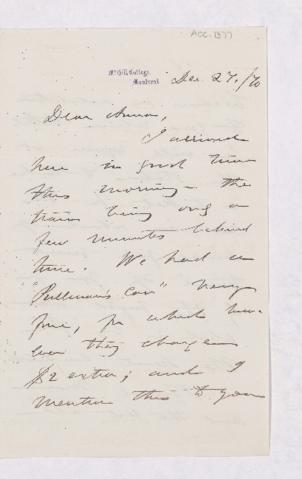 ACC-1377
McGill College,
Montreal
Dec 27/70
Dear Anna,
I arrived
here in good time
this morning - the
train being only a
few minutes behind
time. We had a
"Pullman's car" very
fine, for which how-
ever they charge
$2 extra; and I
mention this to you